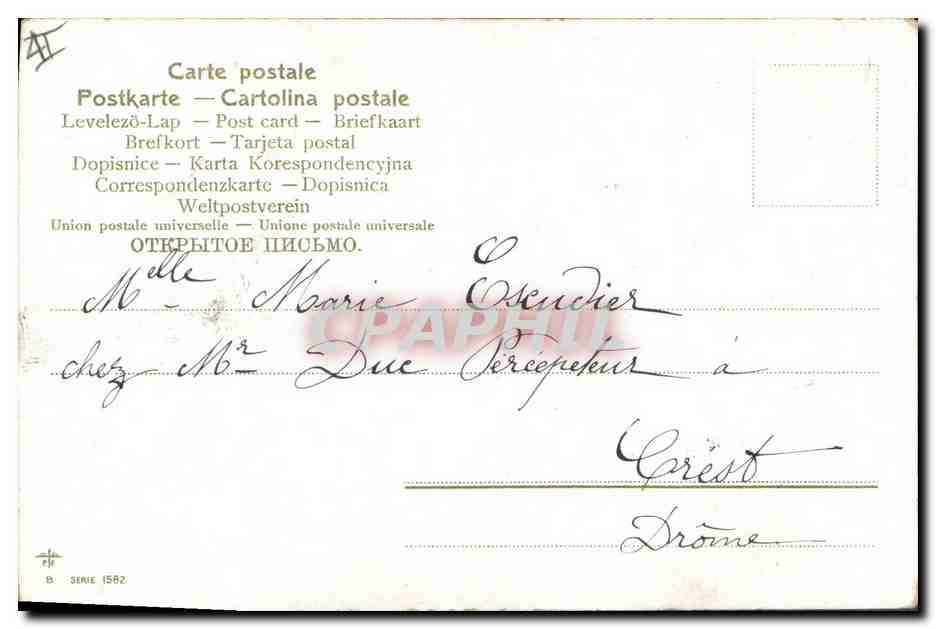 Carte postale
Postkarte — Cartolina postale
Levelezö-Lap — Post card — Briefkaart
Brefkort — Tarjeta postal
Dopisnice — Karta Korespondencyjna
Correspondenzkarte — Dopisnica
Weltpostverein
Union postale universelle — Unione postale universale
ОТКРЫТОЕ ПИСЬМО.
Melle Marie Escudier
CPAPHIL
chez Mr Duc Percepteur à
Crest
Drôme
B SERIE 1582